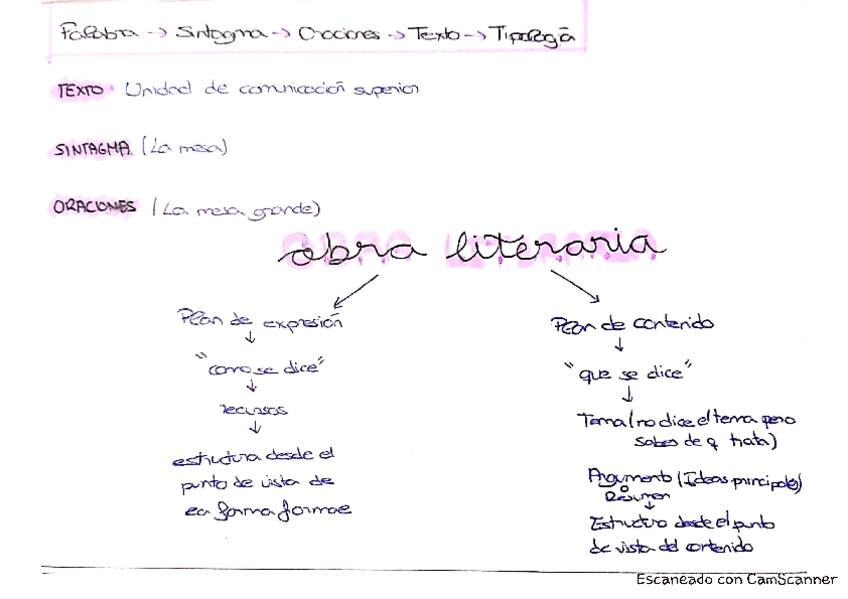 Palabra -> Sintagma -> Oraciones -> Texto -> Tipología
TEXTO: Unidad de comunicación superior
SINTAGMA (La mesa)
ORACIONES (La mesa grande)
obra literaria
Plan de expresión
"como se dice"
recursos
estructura desde el
punto de vista de
la forma formae
Plan de contenido
"que se dice"
Tema (no dice el tema pero
sabes de q trata)
Argumento (Ideas principales)
o
Resumen
Estructura desde el punto
de vista del contenido
Escaneado con CamScanner